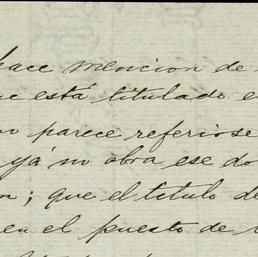 hace mencion de
está titulado e
parece referirse
yá no obra ese do
; que el titulo de
en el puesto de